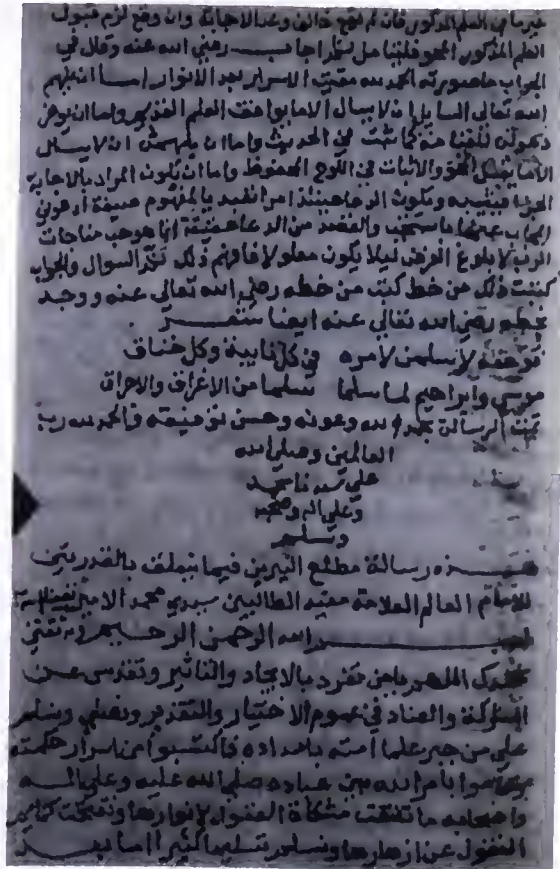 غير ما في العلم المذكور فان لم يقع خالف وعد الاجابة وان وقع لزم قبول
العلم المذكور المحو فلينا مل ينظر اجاب رضي الله عنه وقال في
الجواب ما صورته الحمد لله مفيض الاسرار بعد الانوار اما ان يلهم
الله تعالى السايل ان لا يسال الا ما يوافق العلم القديم واما ان يوخر
دعوته للقيامة كما ثبت في الحديث واما ان
الا ما يقبل المحو والاثبات في اللوح المحفوظ واما ان يكون المراد بالاجابة
ويكون الدعا حينئذ امرا
والقصد من الدعا حقيقة انما هو حب مناجات
الرب لا بلوغ الغرض ليلا يكون معلولا فافهم ذلك تحر السوال والجواب
كتبت ذلك من خط كتب من خطه رضي الله تعالى عنه ووجد
بخطه رضي الله تعالى عنه ايضا شعر
لامره في كل نايبة وكل خناق
موسى وابراهيم لما سلما سلما من الاغراق والاحراق
تمت الرسالة بحمد الله وعونه وحسن توفيقه والحمد لله رب
العالمين وصلى الله
على سيدنا محمد
وعلى اله وصحبه
وسلم
هذه رسالة مطلع النيرين فيما يتعلق بالقدرتين
للامام العالم العلامة مفيد الطالبين سيدي محمد الامير
بسم الله الرحمن الرحيم وبه ثقتي
نحمدك اللهم يا من تفرد بالايجاد والتاثير وتقدس عن
المشاركة والعناد في عموم الاختيار والتقدير ونصلي ونسلم
على من جبر علما امته بامداده فاكتسبوا من اسرار حكمته
بامر الله بين عباده صلى الله عليه وعلى اله
واصحابه ما تلقت مشكاة العقول لانوارها وتفتحت
النقول عن ازهارها وسلم تسليما كثيرا اما بعد